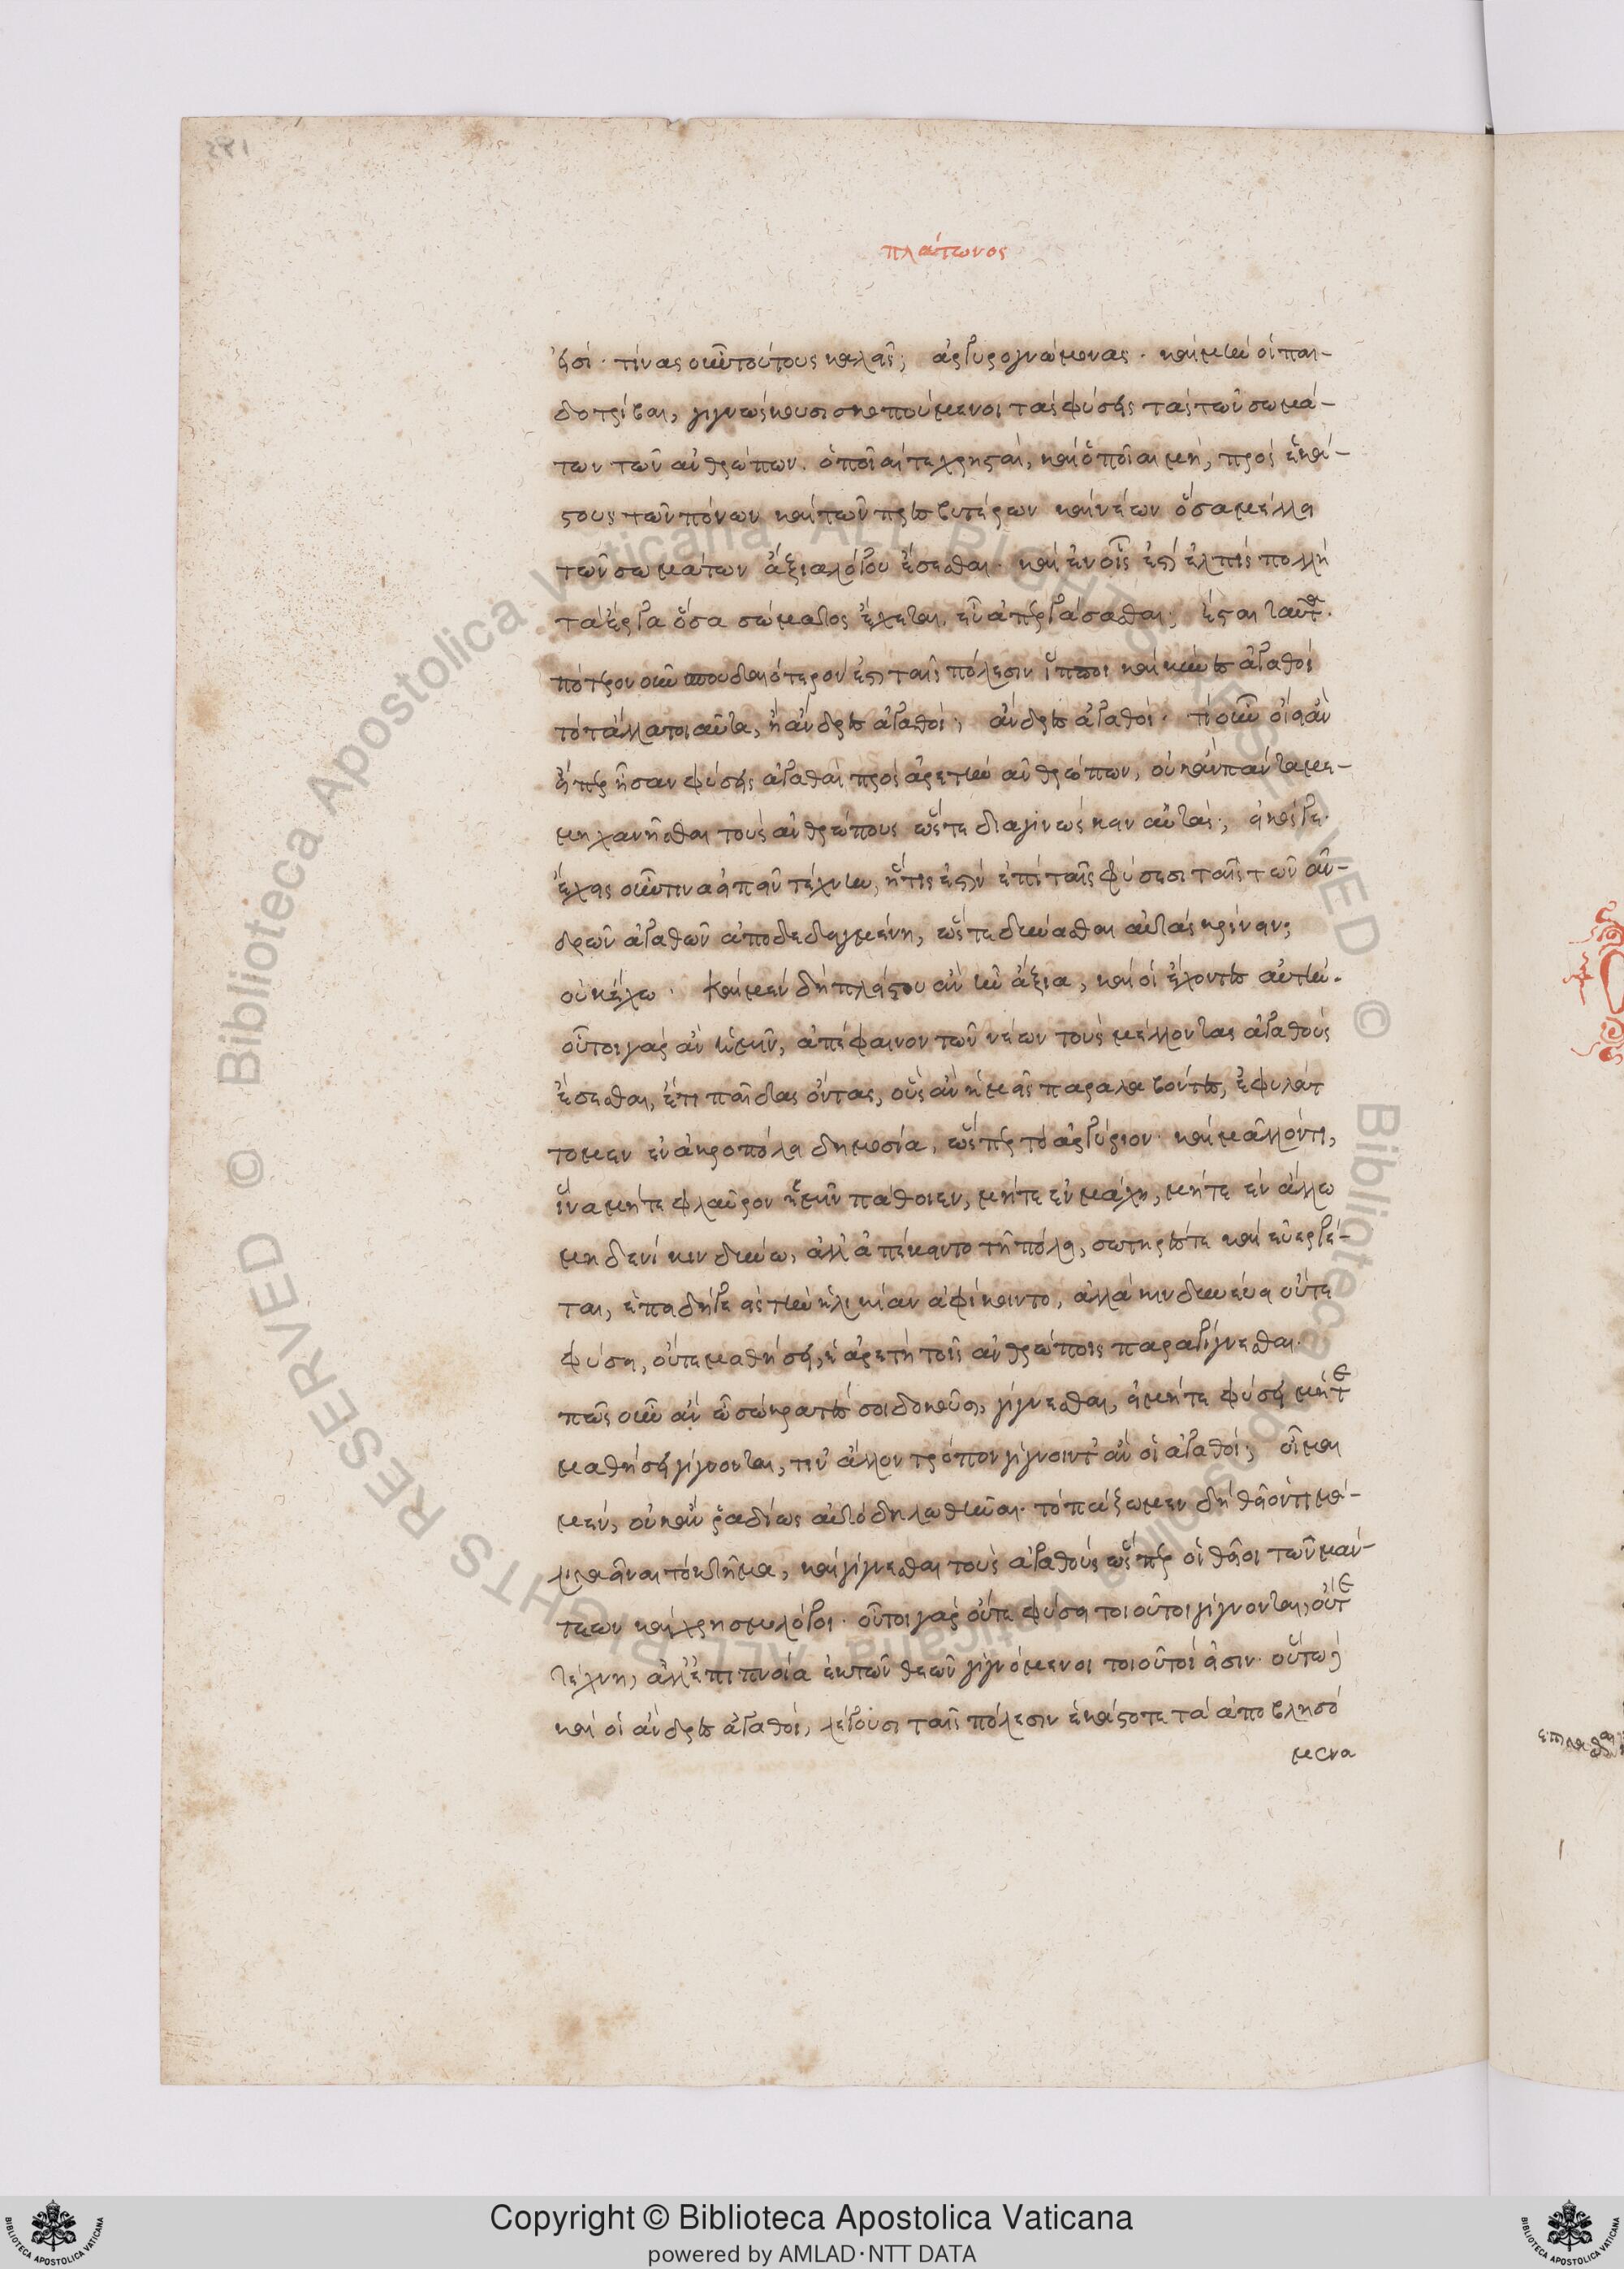 πλάτωνος
εἰσί· τίνας οὖν τούτους καλεῖς; ἀργυρογνώμονας· καὶ μὴν οἱ παι-
δοτρίβαι, γιγνώσκουσι σκοπούμενοι τὰς φύσεις τὰς τῶν σωμά-
των τῶν ἀνθρώπων. ὁποῖαί τε χρησταὶ, καὶ ὁποῖαι μὴ, πρὸς ἑκά-
στους τῶν πόνων καὶ τῶν πρεσβυτέρων καὶ νέων ὅσα μέλλει
τῶν σωμάτων ἀξιαλόγου ἔσεσθαι· καὶ ἐν οἷς ἐστὶ ἐλπὶς πολλὴ
τὰ ἔργα ὅσα σώματος ἔχεται, εὖ ἀπεργάσασθαι; ἔσται ταῦτα.
πότερον οὖν σπουδαιότερον ἐστὶ ταῖς πόλεσιν ἵπποι καὶ κύνες ἀγαθοὶ
τό τἄλλα τοιαῦτα, ἢ ἄνδρες ἀγαθοί; ἄνδρες ἀγαθοί· τί οὖν οἴει ἂν
εἴπερ ἦσαν φύσεις ἀγαθαὶ πρὸς ἀρετὴν ἀνθρώπων, οὐκ ἂν πάντα με-
μηχανῆσθαι τοὺς ἀνθρώπους ὥστε διαγινώσκειν αὐτάς; εἰκός γε.
ἔχεις οὖν τινα εἰπεῖν τέχνην, ἥτις ἐστὶν ἐπὶ ταῖς φύσεσι ταῖς τῶν ἀν-
δρῶν ἀγαθῶν ἀποδεδειγμένη, ὥστε δύνασθαι αὐτὰς κρίνειν;
οὐκ ἔχω. καὶ μὲν δὴ πλείστου ἂν ἦν ἀξία, καὶ οἱ ἔχοντες αὐτήν.
οὗτοι γὰρ ἂν ἡμῖν, ἀπέφαινον τῶν νέων τοὺς μέλλοντας ἀγαθοὺς
ἔσεσθαι, ἔτι παῖδας ὄντας, οὓς ἂν ἡμεῖς παραλαβόντες, ἐφυλάτ
τομεν ἐν ἀκροπόλει δημοσία, ὥσπερ τὸ ἀργύριον· καὶ μᾶλλόν τι,
ἵνα μήτε φλαῦρον ἡμῖν πάθοιεν, μήτε ἐν μάχη, μήτε ἐν ἄλλω
μηδενὶ κινδύνω, ἀλλ' ἀπέκειντο τῆ πόλει, σωτηρές τε καὶ εὐεργέ-
ται, ἐπειδή γε εἰς τὴν ἡλικίαν ἀφίκοιντο, ἀλλὰ κινδυνεύει οὔτε
φύσει, οὔτε μαθήσει, ἡ ἀρετὴ τοῖς ἀνθρώποις παραγίγνεσθαι.
πῶς οὖν ἂν ὦ σώκρατες σοι δοκοῦσι, γίγνεσθαι, εἰ μήτε φύσει μήτε
μαθήσει γίγνονται, τίν' ἄλλον τρόπον γίγνοιντ' ἂν οἱ ἀγαθοί; οἶμαι
μὲν, οὐκ ἂν ῥαδίως αὐτὸ δηλωθῆναι. τοπάζωμεν δὴ θεῖόν τι μά-
λιστα εἶναι τὸ κτῆμα, καὶ γίγνεσθαι τοὺς ἀγαθοὺς ὥσπερ οἱ θεῖοι τῶν μάν-
τεων καὶ χρησμολόγοι· οὗτοι γὰρ οὔτε φύσει τοιοῦτοι γίγνονται, οὔτε
τέχνη, ἀλλ' ἐπιπνοία ἐκ τῶν θεῶν γιγνόμενοι τοιοῦτοί εἰσιν· οὕτω δὲ
καὶ οἱ ἄνδρες ἀγαθοὶ, λέγουσι ταῖς πόλεσιν ἑκάστοτε τὰ ἀποβλησό
μενα